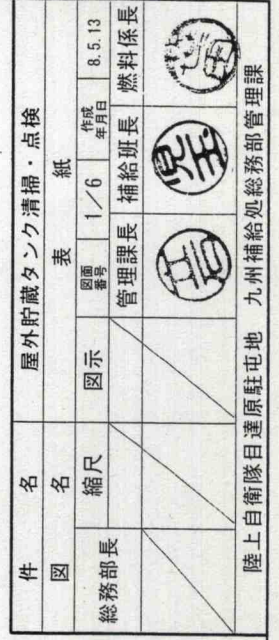 件名 屋外貯蔵タンク清掃・点検
図名 表紙
縮尺 図示 図面番号 1/6 作成年月日 8.5.13
総務部長 管理課長 補給班長 燃料係長
児玉
陸上自衛隊目達原駐屯地 九州補給処総務部管理課